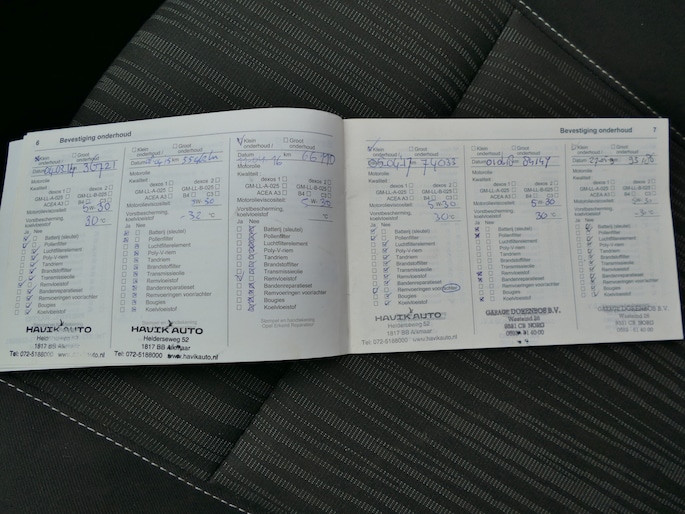 6 Bevestiging onderhoud
Klein onderhoud / Groot onderhoud
Datum km 36721
Motorolie
Kwaliteit:
dexos 1 dexos 2
GM-LL-A-025 GM-LL-B-025
ACEA A3 B4 C3
Motorolieviscositeit: 5W30
Vorstbescherming, koelvloeistof 30 °C
Ja Nee
Batterij (sleutel)
Pollenfilter
Luchtfilterelement
Poly-V-riem
Tandriem
Brandstoffilter
Transmissieolie
Remvloeistof
Bandenreparatieset
Remvoeringen voor/achter
Bougies
Koelvloeistof
HAVIK AUTO
Helderseweg 52
1817 BB Alkmaar
Tel: 072-5188000 www.havikauto.nl
Klein onderhoud / Groot onderhoud
Datum km
Motorolie
Kwaliteit:
dexos 1 dexos 2
GM-LL-A-025 GM-LL-B-025
ACEA A3 B4 C3
Motorolieviscositeit: 5W30
Vorstbescherming, koelvloeistof -32 °C
Ja Nee
Batterij (sleutel)
Pollenfilter
Luchtfilterelement
Poly-V-riem
Tandriem
Brandstoffilter
Transmissieolie
Remvloeistof
Bandenreparatieset
Remvoeringen voor/achter
Bougies
Koelvloeistof
HAVIK AUTO
Helderseweg 52
1817 BB Alkmaar
Tel: 072-5188000 www.havikauto.nl
Klein onderhoud / Groot onderhoud
Datum km
Motorolie
Kwaliteit:
dexos 1 dexos 2
GM-LL-A-025 GM-LL-B-025
ACEA A3 B4 C3
Motorolieviscositeit:
Vorstbescherming, koelvloeistof °C
Ja Nee
Batterij (sleutel)
Pollenfilter
Luchtfilterelement
Poly-V-riem
Tandriem
Brandstoffilter
Transmissieolie
Remvloeistof
Bandenreparatieset
Remvoeringen voor/achter
Bougies
Koelvloeistof
Stempel en handtekening
Opel Erkend Reparateur
Bevestiging onderhoud 7
Klein onderhoud / Groot onderhoud
km 74033
Motorolie
Kwaliteit:
dexos 1 dexos 2
GM-LL-A-025 GM-LL-B-025
ACEA A3 B4 C3
Motorolieviscositeit: 5W30
Vorstbescherming, koelvloeistof 30 °C
Ja Nee
Batterij (sleutel)
Pollenfilter
Luchtfilterelement
Poly-V-riem
Tandriem
Brandstoffilter
Transmissieolie
Remvloeistof
Bandenreparatieset
Remvoeringen voor/achter
Bougies
Koelvloeistof
HAVIK AUTO
Helderseweg 52
1817 BB Alkmaar
Tel: 072-5188000 www.havikauto.nl
Klein onderhoud / Groot onderhoud
Motorolie
Kwaliteit:
dexos 1 dexos 2
GM-LL-A-025 GM-LL-B-025
ACEA A3 B4 C3
Motorolieviscositeit: 5W30
Vorstbescherming, koelvloeistof 30 °C
Ja Nee
Batterij (sleutel)
Pollenfilter
Luchtfilterelement
Poly-V-riem
Tandriem
Brandstoffilter
Transmissieolie
Remvloeistof
Bandenreparatieset
Remvoeringen voor/achter
Bougies
Koelvloeistof
GARAGE B.V.
Klein onderhoud / Groot onderhoud
Datum
Motorolie
Kwaliteit:
dexos 1 dexos 2
GM-LL-A-025 GM-LL-B-025
ACEA A3 B4 C3
Motorolieviscositeit: 5W30
Vorstbescherming, koelvloeistof -30 °C
Ja Nee
Batterij (sleutel)
Pollenfilter
Luchtfilterelement
Poly-V-riem
Tandriem
Brandstoffilter
Transmissieolie
Remvloeistof
Bandenreparatieset
Remvoeringen voor/achter
Bougies
Koelvloeistof